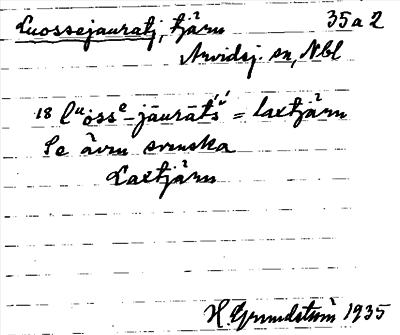 Luossejauratj, tjärn 35a2
Arvidsj. sn, Nbl
18 lᵘossᵉ-jāurātś = laxtjärn
Se även svenska
Laxtjärn
H. Grundström 1935